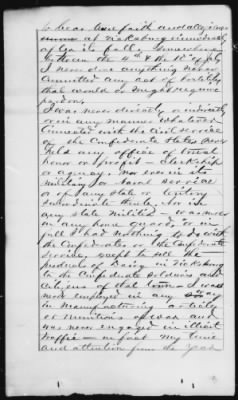 to bear true faith and allegiance
at Vicksburg immediately
after its fall, Somewhere
between the 4th & the 10th of July
I never done anything nor
committed any act of hostility
that would or might require
pardon.
I was never directly or indirectly
or in any manner whatever
connected with the Civil Service
of the Confederate States nor
held any office of trust
honor or profit — clerkship
or agency. Nor ever in its
military or Naval service
or of any state or
thereto. Nor in
any state militia — was never
in any home guard, or in
full I had nothing to do with
the Confederates, or the Confederate
Service, except to sell the
products of dairy in Vicksburg
to the Confederate Soldiers and
Citizens of that town. I was
never employed in any way
in manufacturing articles
or munitions of war and
was never engaged in illicit
traffic — in fact my time
and attention from the year